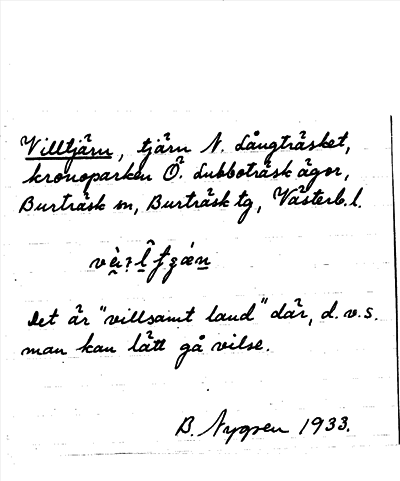 Villtjärn, tjärn N. Långträsket,
kronoparken Ö. Lubboträsk ägor,
Burträsk sn, Burträsk tg, Västerb.l.
Det är "villsamt land" där, d.v.s.
man kan lätt gå vilse.
B. Nygren 1933.